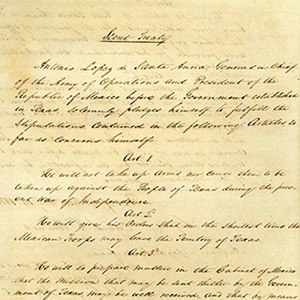 Secret Treaty
Antonio Lopez de Santa Anna, General in Chief
of the Army of Operations and President of the
Republic of Mexico before the Government established
in Texas solemnly pledges himself to fulfill the
Stipulations contained in the following Articles so
far as concerns himself.
Art. 1
He will not take up Arms nor cause them to be
taken up against the People of Texas during the pres-
ent war of Independence.
Art 2d
He will give his Orders that in the shortest time the
Mexican Troops may leave the Territory of Texas.
Art. 3d
He will so prepare matters in the Cabinet of Mexico
that the mission that may be sent thither by the Govern-
ment of Texas may be well received, and that by means